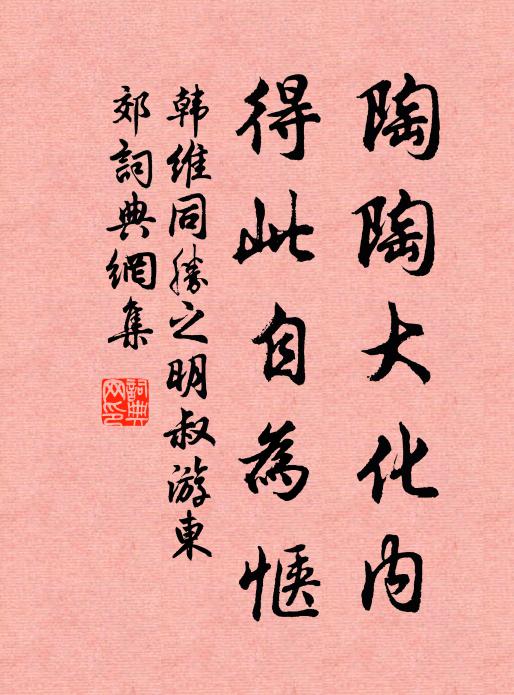 陶陶大化内
得此自為愜
韩維同勝之明叔游東
郊詞典網集
詞典网印